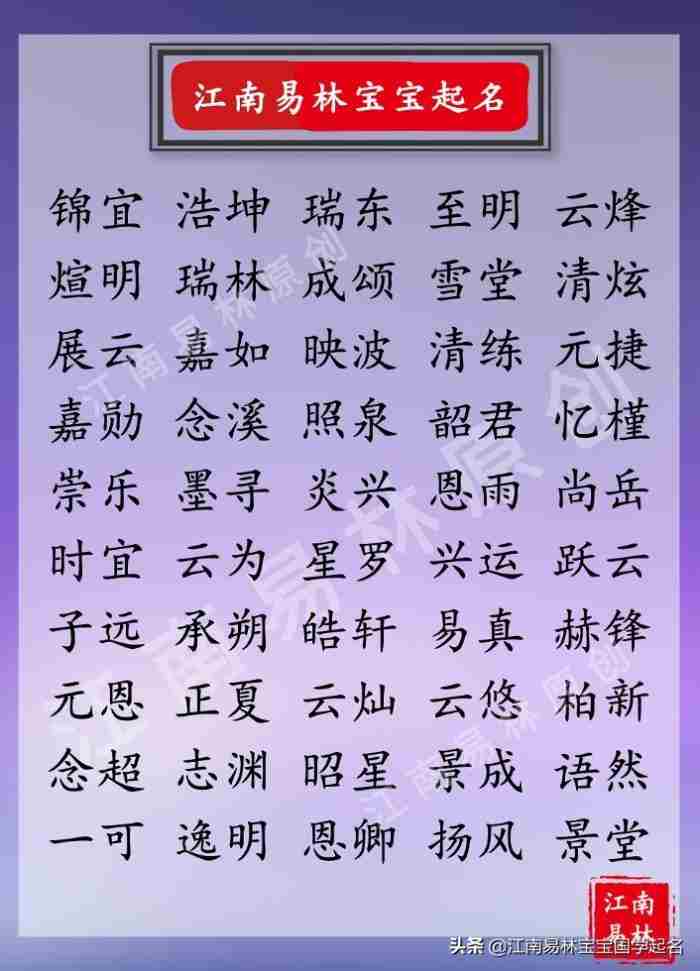 江南易林宝宝起名
锦宜 浩坤 瑞东 至明 云烽
煊明 瑞林 成颂 雪堂 清炫
展云 嘉如 映波 清练 元捷
嘉勋 念溪 照泉 韶君 忆槿
崇乐 墨寻 炎兴 恩雨 尚岳
时宜 云为 星罗 兴运 跃云
子远 承朔 皓轩 易真 赫锋
元恩 正夏 云灿 云悠 柏新
念超 志渊 昭星 景成 语然
一可 逸明 恩卿 扬风 景堂
江南易林原创
江南易林原创
江南易林原创
江南
易林
头条 @江南易林宝宝国学起名